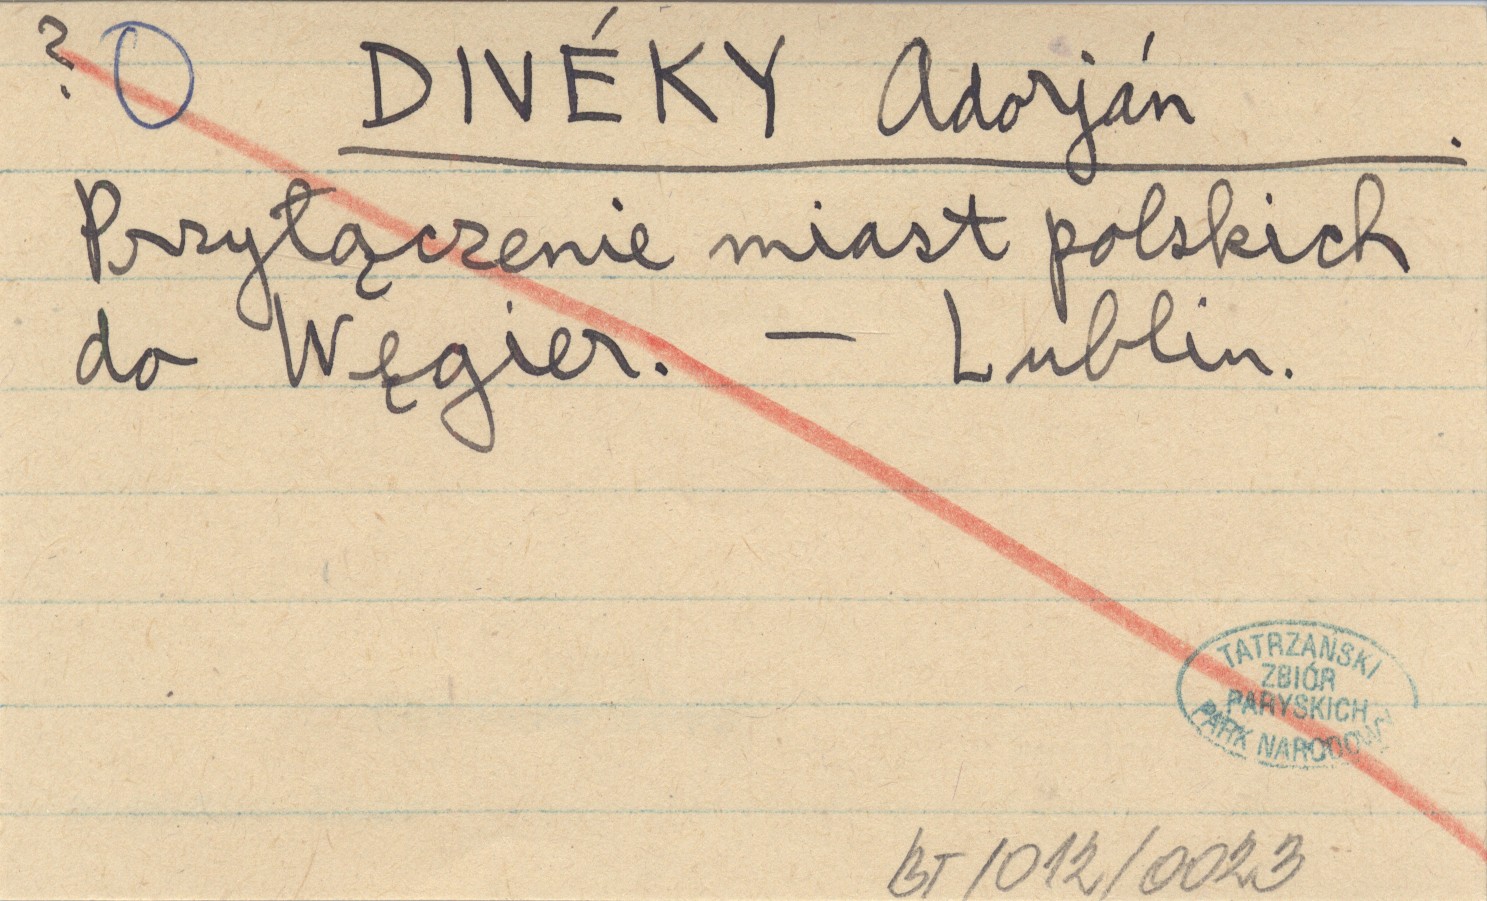 ?
DIVÉKY Adorján.
Przyłączenie miast polskich
do Węgier. — Lublin.
TATRZAŃSKI
ZBIÓR
PARYSKICH
PARK NARODOWY
BT/012/0023